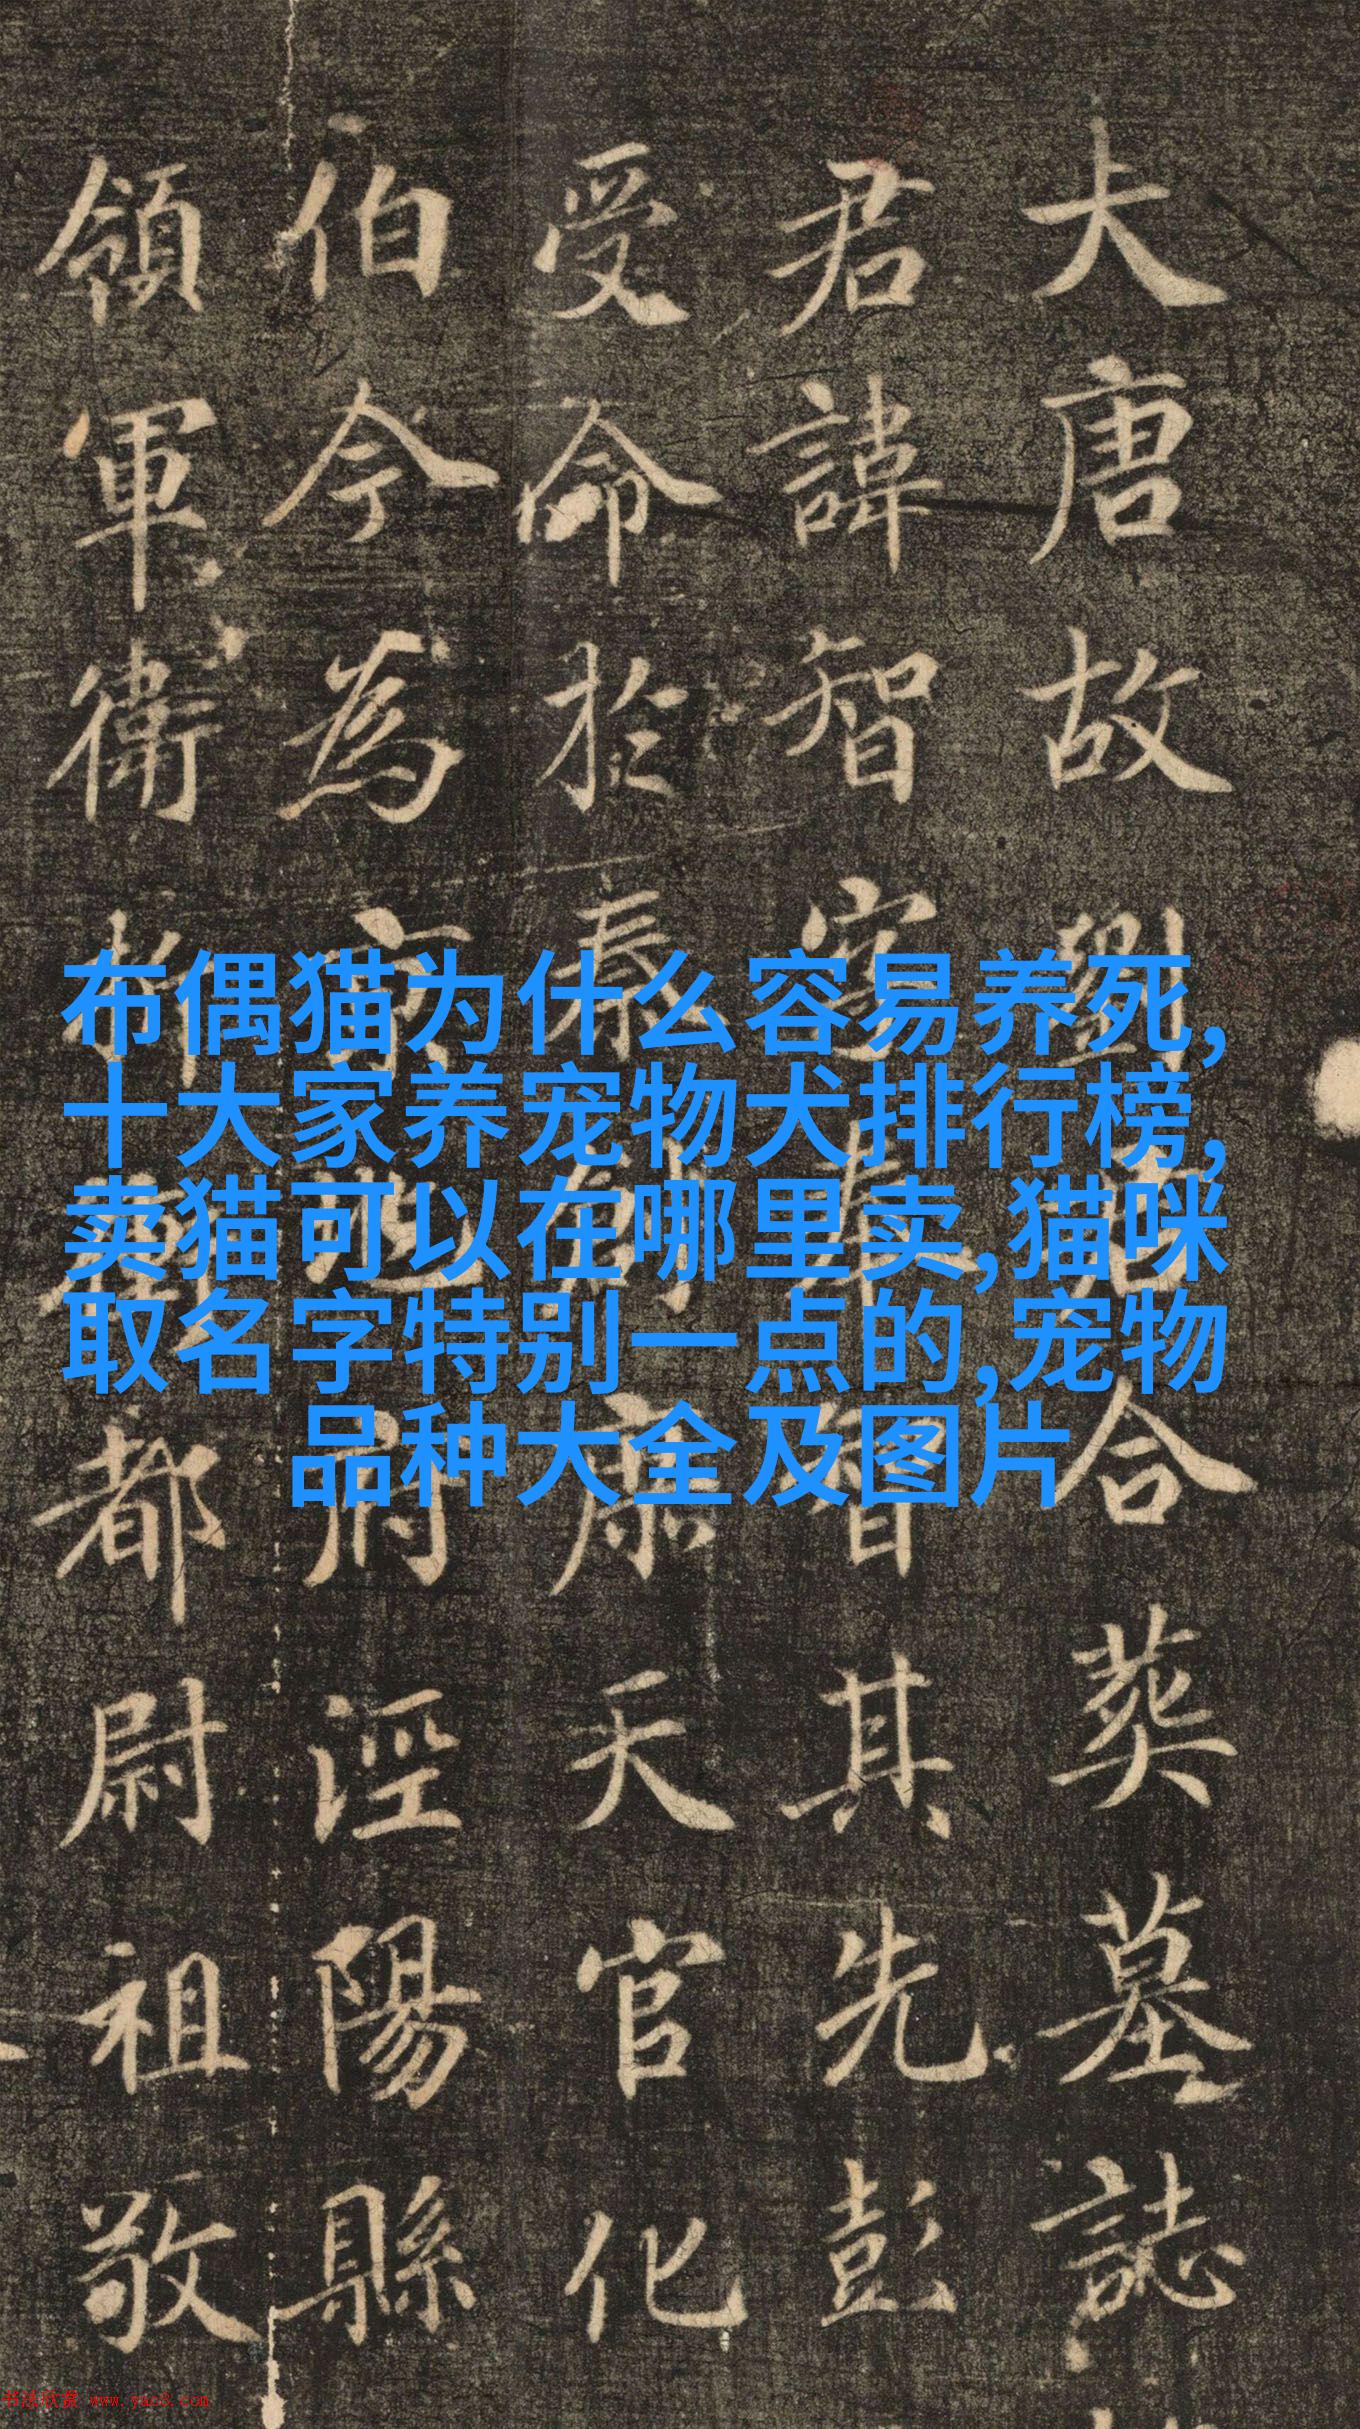 布偶猫为什么容易养死,
十大家养宠物犬排行榜,
卖猫可以在哪里卖,猫咪
取名字特别一点的,宠物
品种大全及图片
大唐故劉君合葬墓誌
君諱智字奉智其先彭
受命於秦康天官化
伯今為京兆府涇陽縣
領軍衛折衝都尉祖敬
书法欣赏 www.yac8.com